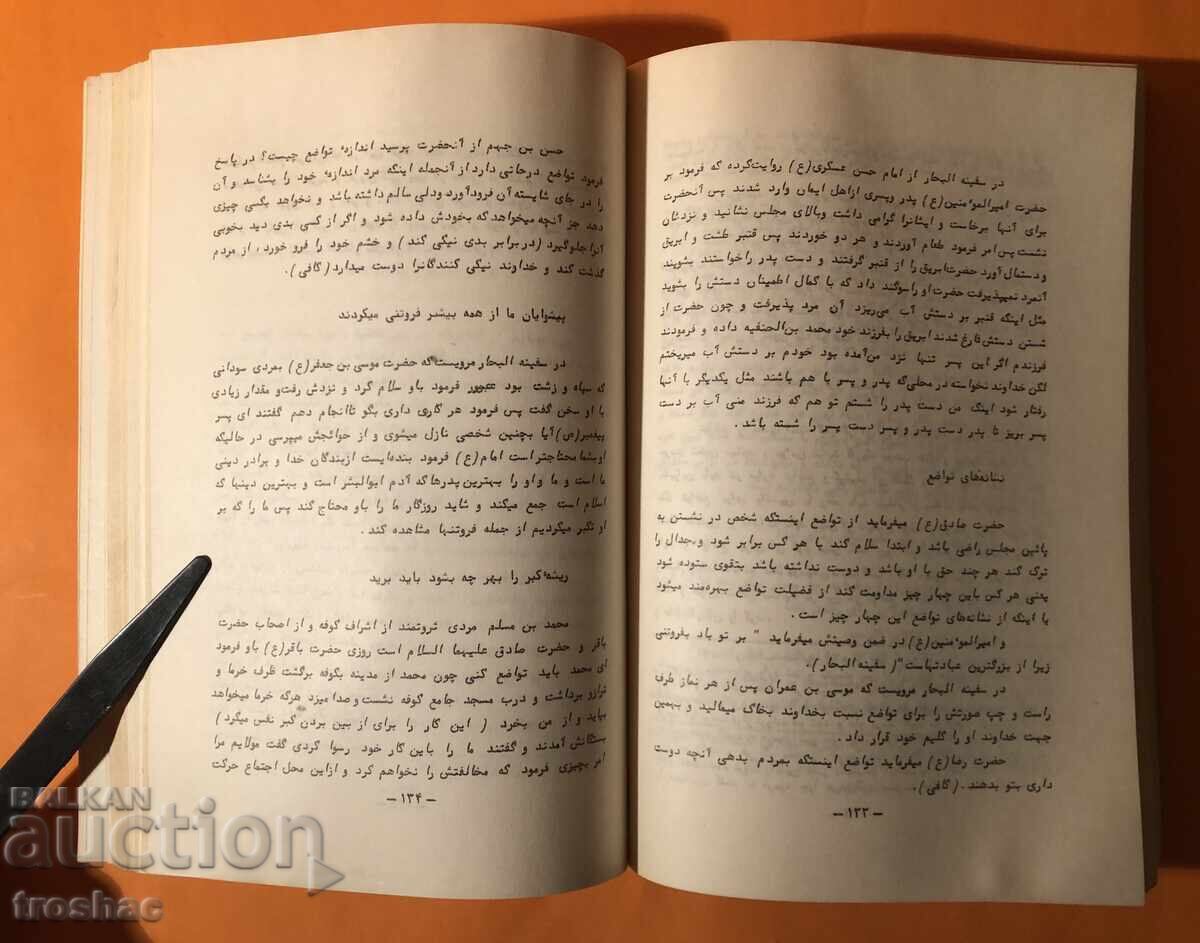 در سفینه البحار از امام حسن عسکری(ع) روایت‌کرده که فرمود بر
حضرت امیرالموٴمنین(ع) پدر وپسری ازاهل ایمان وارد شدند پس آنحضرت
برای آنها برخاست و ایشانرا گرامی داشت وبالای مجلس نشانید و نزدشان
نشست پس‌امر فرمود طعام آوردند و هر دو خوردند پس قنبر طشت و ابریق
و دستمال آورد حضرت‌ابریق را از قنبر گرفتند و دست پدر راخواستند بشویند
آنمرد نمیپذیرفت حضرت او راسوگند داد که با کمال اطمینان دستش را بشوید
مثل اینکه قنبر بر دستش آب می‌ریزد. آن مرد پذیرفت و چون حضرت از
شستن دستش‌فارغ شدند ابریق را بفرزند خود محمد بن‌الحنفیه داده و فرمودند
فرزندم اگراین پسر تنها نزد من‌آمده بود خودم بر دستش آب میریختم
لکن خداوند نخواسته در محلی‌که پدر و پسر با هم باشند مثل یکدیگر با آنها
رفتار شود اینک من دست پدر را شستم تو هم که فرزند منی آب بر دست
پسر بریز تا پدر دست پدر و پسر دست پسر را شسته باشد.
نشانه‌های تواضع
حضرت صادق(ع) میفرماید از تواضع اینستکه شخص در نشستن به
پائین مجلس راضی باشد و ابتدا سلام کند با هر کس برابر شود و جدال را
ترک کند هر چند حق با او باشد و دوست نداشته باشد بتقوی ستوده شود
یعنی هر کس باین چهار چیز مداومت کند از فضیلت تواضع بهره‌مند میشود
یا اینکه از نشانه‌های تواضع این چهار چیز است.
و امیرالموٴمنین(ع) در ضمن وصیتش میفرماید " بر تو باد بفروتنی
زیرا از بزرگترین عبادتهاست" (سفینه البحار).
در سفینه البحار مرویست که موسی بن عمران پس از هر نماز طرف
راست و چپ صورتش را برای تواضع نسبت بخداوند بخاک میمالید و بهمین
جهت خداوند او را کلیم خود قرار داد.
حضرت رضا(ع) میفرماید تواضع اینستکه بمردم بدهی آنچه دوست
داری بتو بدهند. (کافی).
- ۱۳۳ -
حسن بن جهم از آنحضرت پرسید اندازهٴ تواضع چیست؟ در پاسخ
فرمود تواضع درجاتی دارد از آنجمله اینکه مرد اندازهٴ خود را بشناسد و آن
را در جای شایسته آن فرود آورد ودلی سالم داشته باشد و نخواهد بکسی چیزی
دهد جز آنچه میخواهد که بخودش داده شود و اگر از کسی بدی دید بخوبی
آنرا جلوگیرد (در برابر بدی نیکی کند) و خشم خود را فرو خورد، از مردم
گذشت کند و خداوند نیکی کنندگانرا دوست میدارد (کافی).
پیشوایان ما از همه بیشتر فروتنی میکردند
در سفینه البحار مرویست‌که حضرت موسی بن جعفر(ع) بمردی سودانی
که سیاه و زشت بود عبور فرمود باو سلام کرد و نزدش رفت‌و مقدار زیادی
با او سخن گفت پس فرمود هر کاری داری بگو تاانجام دهم گفتند ای پسر
پیغمبر(ص) آیا بچنین شخصی نازل میشوی و از حوائجش میپرسی در حالیکه
او بشما محتاجتر است امام(ع) فرمود بنده‌ایست ازبندگان خدا و برادر دینی
ما است و ما و او را بهترین پدرها که آدم ابوالبشر است و بهترین دینها که
اسلام است جمع میکند و شاید روزگار ما را باو محتاج کند پس ما را که بر
او تکبر میکردیم از جمله فروتنها مشاهده کند.
ریشهٴ کبر را بهر چه بشود باید برید
محمد بن مسلم مردی ثروتمند از اشراف کوفه و از اصحاب حضرت
باقر و حضرت صادق علیهما السلام است روزی حضرت باقر(ع) باو فرمود
ای محمد باید تواضع کنی چون محمد از مدینه بکوفه برگشت ظرف خرما و
ترازو برداشت و درب مسجد جامع کوفه نشست و صدا میزد هرکه خرما میخواهد
بیاید و از من بخرد (این کار را برای از بین بردن کبر نفس میکرد)
بستگانش آمدند و گفتند ما را باین کار خود رسوا کردی گفت مولایم مرا
امر بچیزی فرمود که مخالفتش را نخواهم کرد و ازاین محل اجتماع حرکت
- ۱۳۴ -
BALKAN
auction
troshac